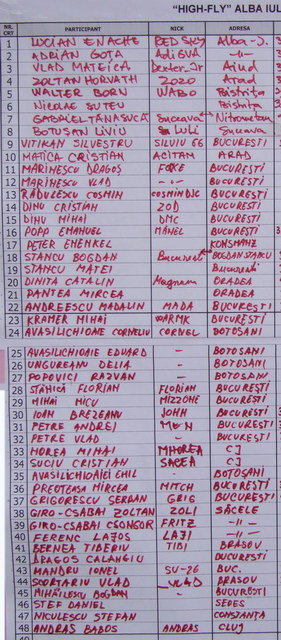 "HIGH-FLY" ALBA IUL
NR. CRT PARTICIPANT NICK ADRESA
1 LUCIAN ENACHE RED SKY Alba-J.
2 ADRIAN GOTA AdiGVA -"-
3 VLAD MATEICA Dexter_Jr Aiud
4 ZOLTAN HORVATH ZOZO Arad
5 WALTER BORN WABO Bistrița
6 Nicolae SUTEU Bistrița
7 GABRIEL TANASUCĂ Suceava
8 BOTUȘAN LIVIU LULI Suceava
9 VITIKAN SILVESTRU SILVIU 66 BUCUREȘTI
10 MATICA CRISTIAN ACITAN ARAD
11 MARINESCU DRAGOȘ FOXE BUCUREȘTI
12 MARINESCU VLAD -"- BUCUREȘTI
13 RĂDULESCU COSMIN COSMINDJC BUCUREȘTI
14 DINU CRISTIAN ZOD BUCUREȘTI
15 DINU MIHAI DMC BUCUREȘTI
16 POPP EMANUEL MANEL BUCUREȘTI
17 PETER EHENKEL KONSMANZ
18 STANCU BOGDAN București BOGDAN STANCU
19 STANCU MATEI București
20 DINITA CATALIN Magnum ORADEA
21 PANTEA MIRCEA ORADEA
22 ANDREESCU MADALIN MADA BUCUREȘTI
23 KRAMER MIHAI BUCUREȘTI
24 AVASILICHIOAIE CORNELIU CORNEL BOTOSANI
25 AVASILICHIOAIE EDUARD - BOTOSANI
26 UNGUREANU DELIA - BOTOSANI
27 POPOVICI RAZVAN - BOTOSANI
28 STĂNICĂ FLORIAN FLORIAN BUCUREȘTI
29 MIHAI MICU MIZZONE BUCUREȘTI
30 IOAN BREZEANU JOHN BUCUREȘTI
31 PETRE ANDREI BUCUREȘTI
32 PETRE VLAD - BUCUREȘTI
33 HOREA MIHAI MHOREA CJ
34 SUCIU CRISTIAN SACEA CJ
35 AVASILICHIOAIEI CHIL - BOTOȘANI
36 PREOTEASA MIRCEA MITCH BUCUREȘTI
37 GRIGORESCU SERBAN GRIG BUCUREȘTI
38 GIRO-CSABAI ZOLTAN ZOLI SĂCELE
39 GIRO-CSABAI CSONGOR FRITZ -"-
40 FERENC LAJOS LAJI -"-
41 BERNEA TIBERIU TIBI BRASOV
42 DRAGOS CALANGIU BUCURESTI
43 MANDRU IONEL SU-26 BUC.
44 SCORTARIU VLAD _VLAD BRASOV
45 MIHĂILESCU BOGDAN - BUCUREȘTI
46 STEF DANIEL SEDES
47 NICULESCU STEFAN CONSTANTA
48 ANDRAS BABOS ANDRAS CLUJ